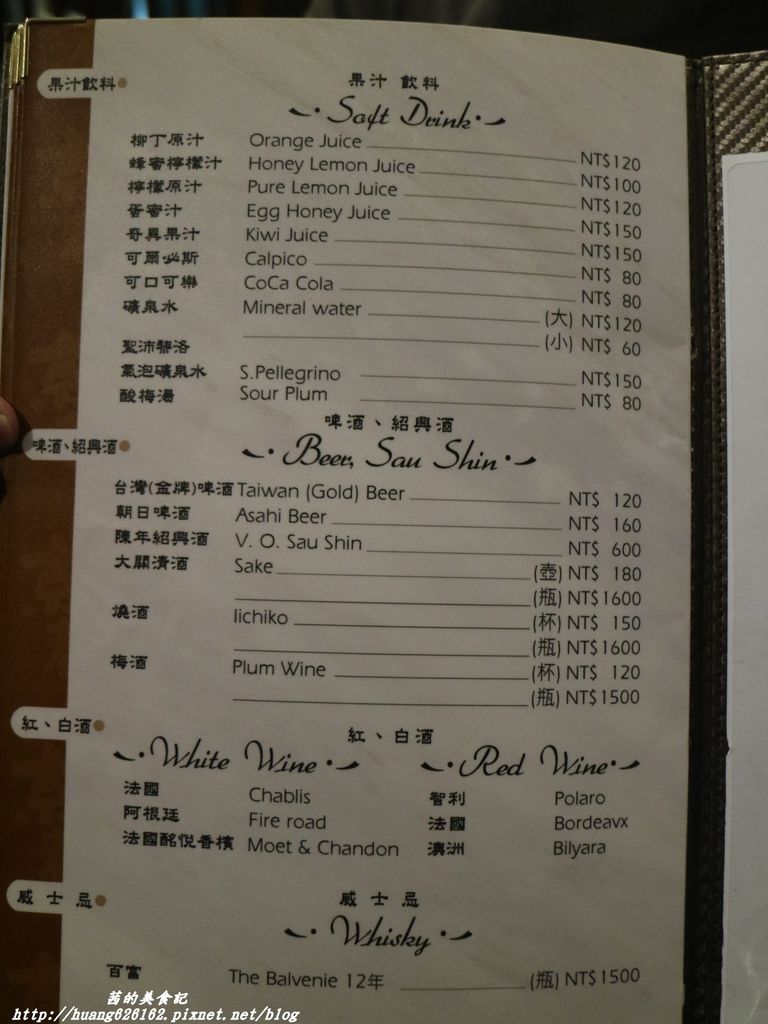 果汁飲料
果汁 飲料
Saft Drink
柳丁原汁 Orange Juice NT$120
蜂蜜檸檬汁 Honey Lemon Juice NT$100
檸檬原汁 Pure Lemon Juice NT$120
蛋蜜汁 Egg Honey Juice NT$150
奇異果汁 Kiwi Juice NT$150
可爾必斯 Calpico NT$ 80
可口可樂 CoCa Cola NT$ 80
礦泉水 Mineral water (大) NT$120
(小) NT$ 60
聖沛黎洛
氣泡礦泉水 S.Pellegrino NT$150
酸梅湯 Sour Plum NT$ 80
啤酒、紹興酒
啤酒、紹興酒
Beer, Sau Shin
台灣(金牌)啤酒 Taiwan (Gold) Beer NT$ 120
朝日啤酒 Asahi Beer NT$ 160
陳年紹興酒 V. O. Sau Shin NT$ 600
大關清酒 Sake (壺) NT$ 180
(瓶) NT$1600
燒酒 Iichiko (杯) NT$ 150
(瓶) NT$1600
梅酒 Plum Wine (杯) NT$ 120
(瓶) NT$1500
紅、白酒
紅、白酒
White Wine Red Wine
法國 Chablis 智利 Polaro
阿根廷 Fire road 法國 Bordeavx
法國酩悅香檳 Moet & Chandon 澳洲 Bilyara
威士忌
威士忌
Whisky
百富 The Balvenie 12年 (瓶) NT$1500
茜的美食記
http://huang626162.pixnet.net/blog